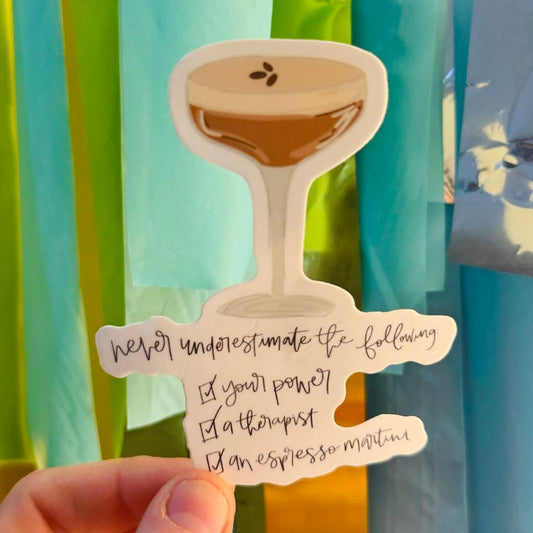 never underestimate the following
your power
a therapist
an espresso martini